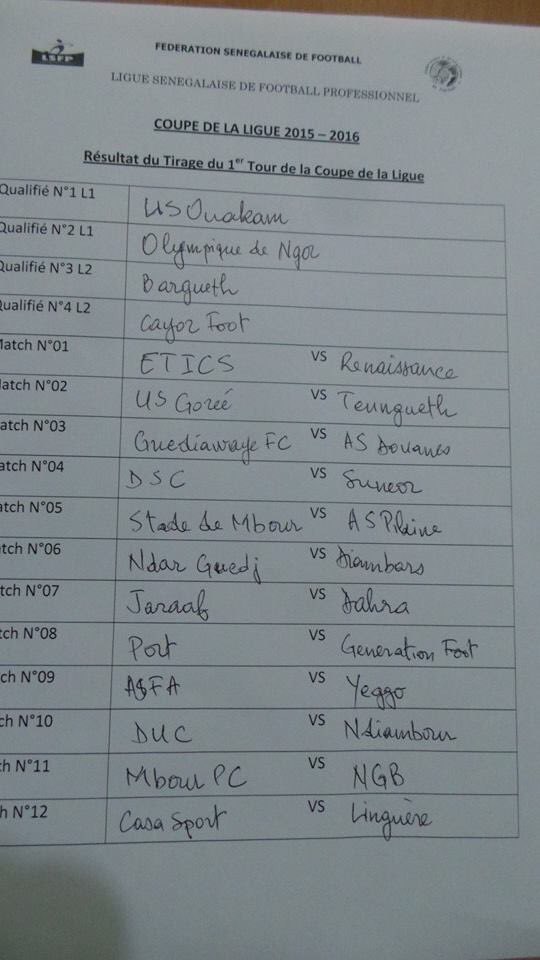 LSFP
FEDERATION SENEGALAISE DE FOOTBALL
LIGUE SENEGALAISE DE FOOTBALL PROFESSIONNEL
COUPE DE LA LIGUE 2015 – 2016
Résultat du Tirage du 1er Tour de la Coupe de la Ligue
Qualifié N°1 L1 US Ouakam
Qualifié N°2 L1 Olympique de Ngor
Qualifié N°3 L2 Bargueth
Qualifié N°4 L2 Cayor Foot
Match N°01 ETICS VS Renaissance
Match N°02 US Goreé VS Teungueth
atch N°03 Guediawaye FC VS AS Douanes
atch N°04 DSC VS Suneor
atch N°05 Stade de Mbour VS AS Pikine
tch N°06 Ndar Guedj VS Diambars
tch N°07 Jaraaf VS Dahra
tch N°08 Port VS Generation Foot
ch N°09 ASFA VS Yeggo
ch N°10 DUC VS Ndiambour
h N°11 Mbour PC VS NGB
h N°12 Casa Sport VS Linguère